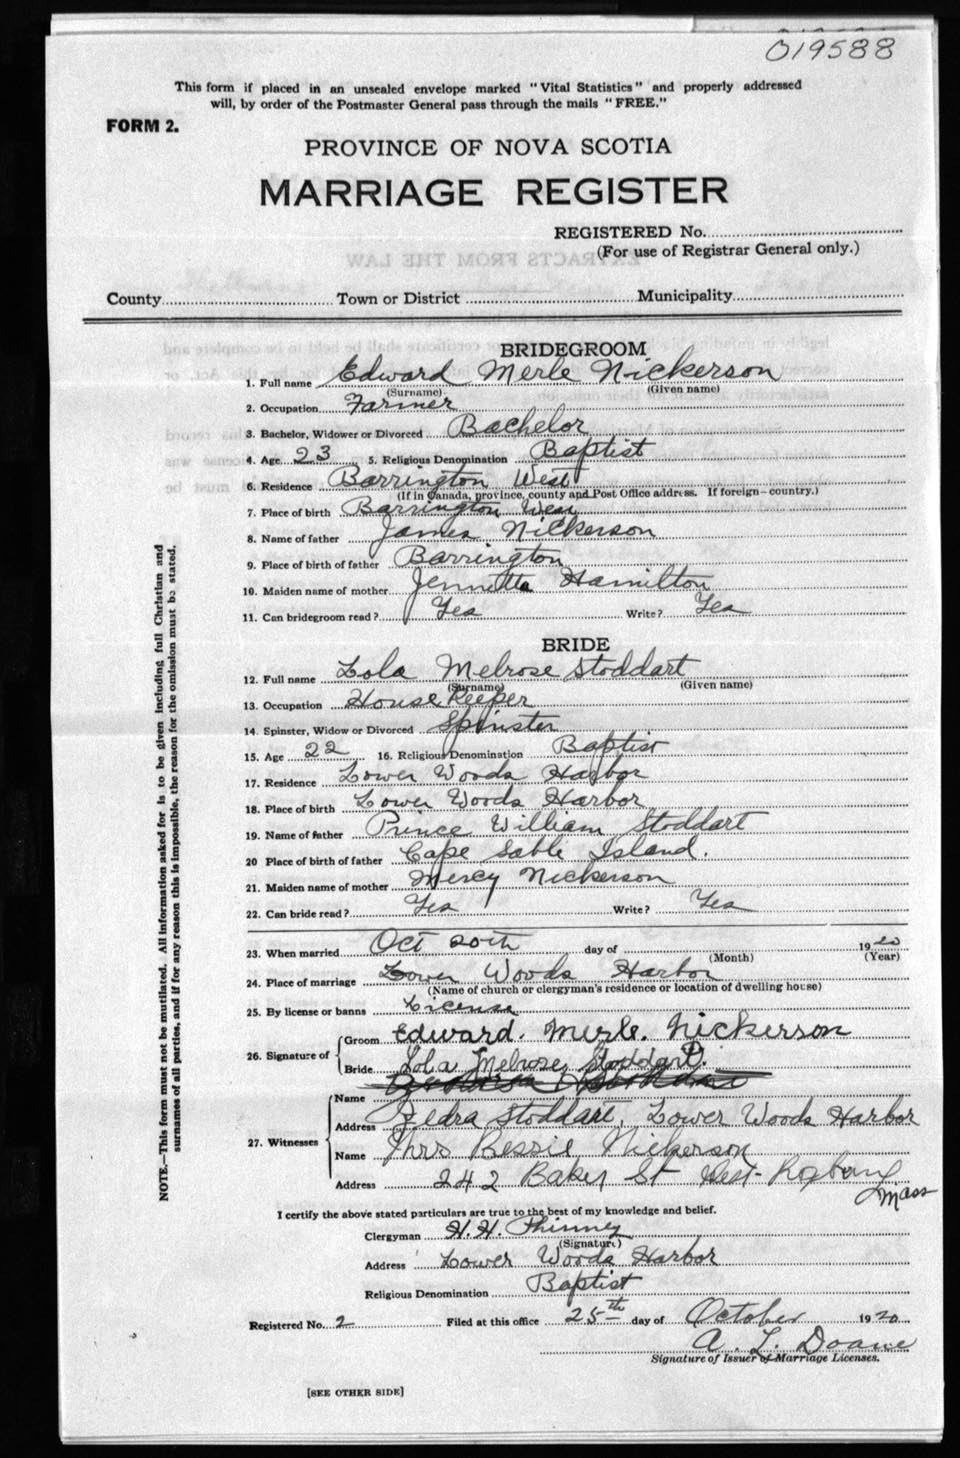 019588
This form if placed in an unsealed envelope marked "Vital Statistics" and properly addressed
will, by order of the Postmaster General pass through the mails "FREE."
FORM 2.
PROVINCE OF NOVA SCOTIA
MARRIAGE REGISTER
REGISTERED No.
(For use of Registrar General only.)
County Town or District Municipality
BRIDEGROOM
1. Full name Edward Merle Nickerson
(Surname) (Given name)
2. Occupation Farmer
3. Bachelor, Widower or Divorced Bachelor
4. Age 23 5. Religious Denomination Baptist
6. Residence Barrington West
(If in Canada, province, county and Post Office address. If foreign—country.)
7. Place of birth Barrington West
8. Name of father James Nickerson
9. Place of birth of father Barrington
10. Maiden name of mother Jennetta Hamilton
11. Can bridegroom read? Yes Write? Yes
BRIDE
12. Full name Lola Melrose Stoddart
(Surname) (Given name)
13. Occupation House Keeper
14. Spinster, Widow or Divorced Spinster
15. Age 22 16. Religious Denomination Baptist
17. Residence Lower Woods Harbor
18. Place of birth Lower Woods Harbor
19. Name of father Prince William Stoddart
20 Place of birth of father Cape Sable Island.
21. Maiden name of mother Mercy Nickerson
22. Can bride read? Yes Write? Yes
23. When married Oct 20th day of 1920
(Month) (Year)
24. Place of marriage Lower Woods Harbor
(Name of church or clergyman's residence or location of dwelling house)
25. By license or banns License
26. Signature of Groom Edward. Merle. Nickerson
Bride Lola Melrose Stoddart.
27. Witnesses
Name
Address Zedra Stoddart, Lower Woods Harbor
Name Mrs Bessie Nickerson
Address 242 Baker St West-Roxbury
Mass
I certify the above stated particulars are true to the best of my knowledge and belief.
Clergyman H. H. Phinney
(Signature)
Address Lower Woods Harbor
Religious Denomination Baptist
Registered No. 2 Filed at this office 25th day of October 1920
A. L. Doane
Signature of Issuer of Marriage Licenses.
[SEE OTHER SIDE]
NOTE.—This form must not be mutilated. All information asked for is to be given including full Christian and
surnames of all parties, and if for any reason this is impossible, the reason for the omission must be stated.